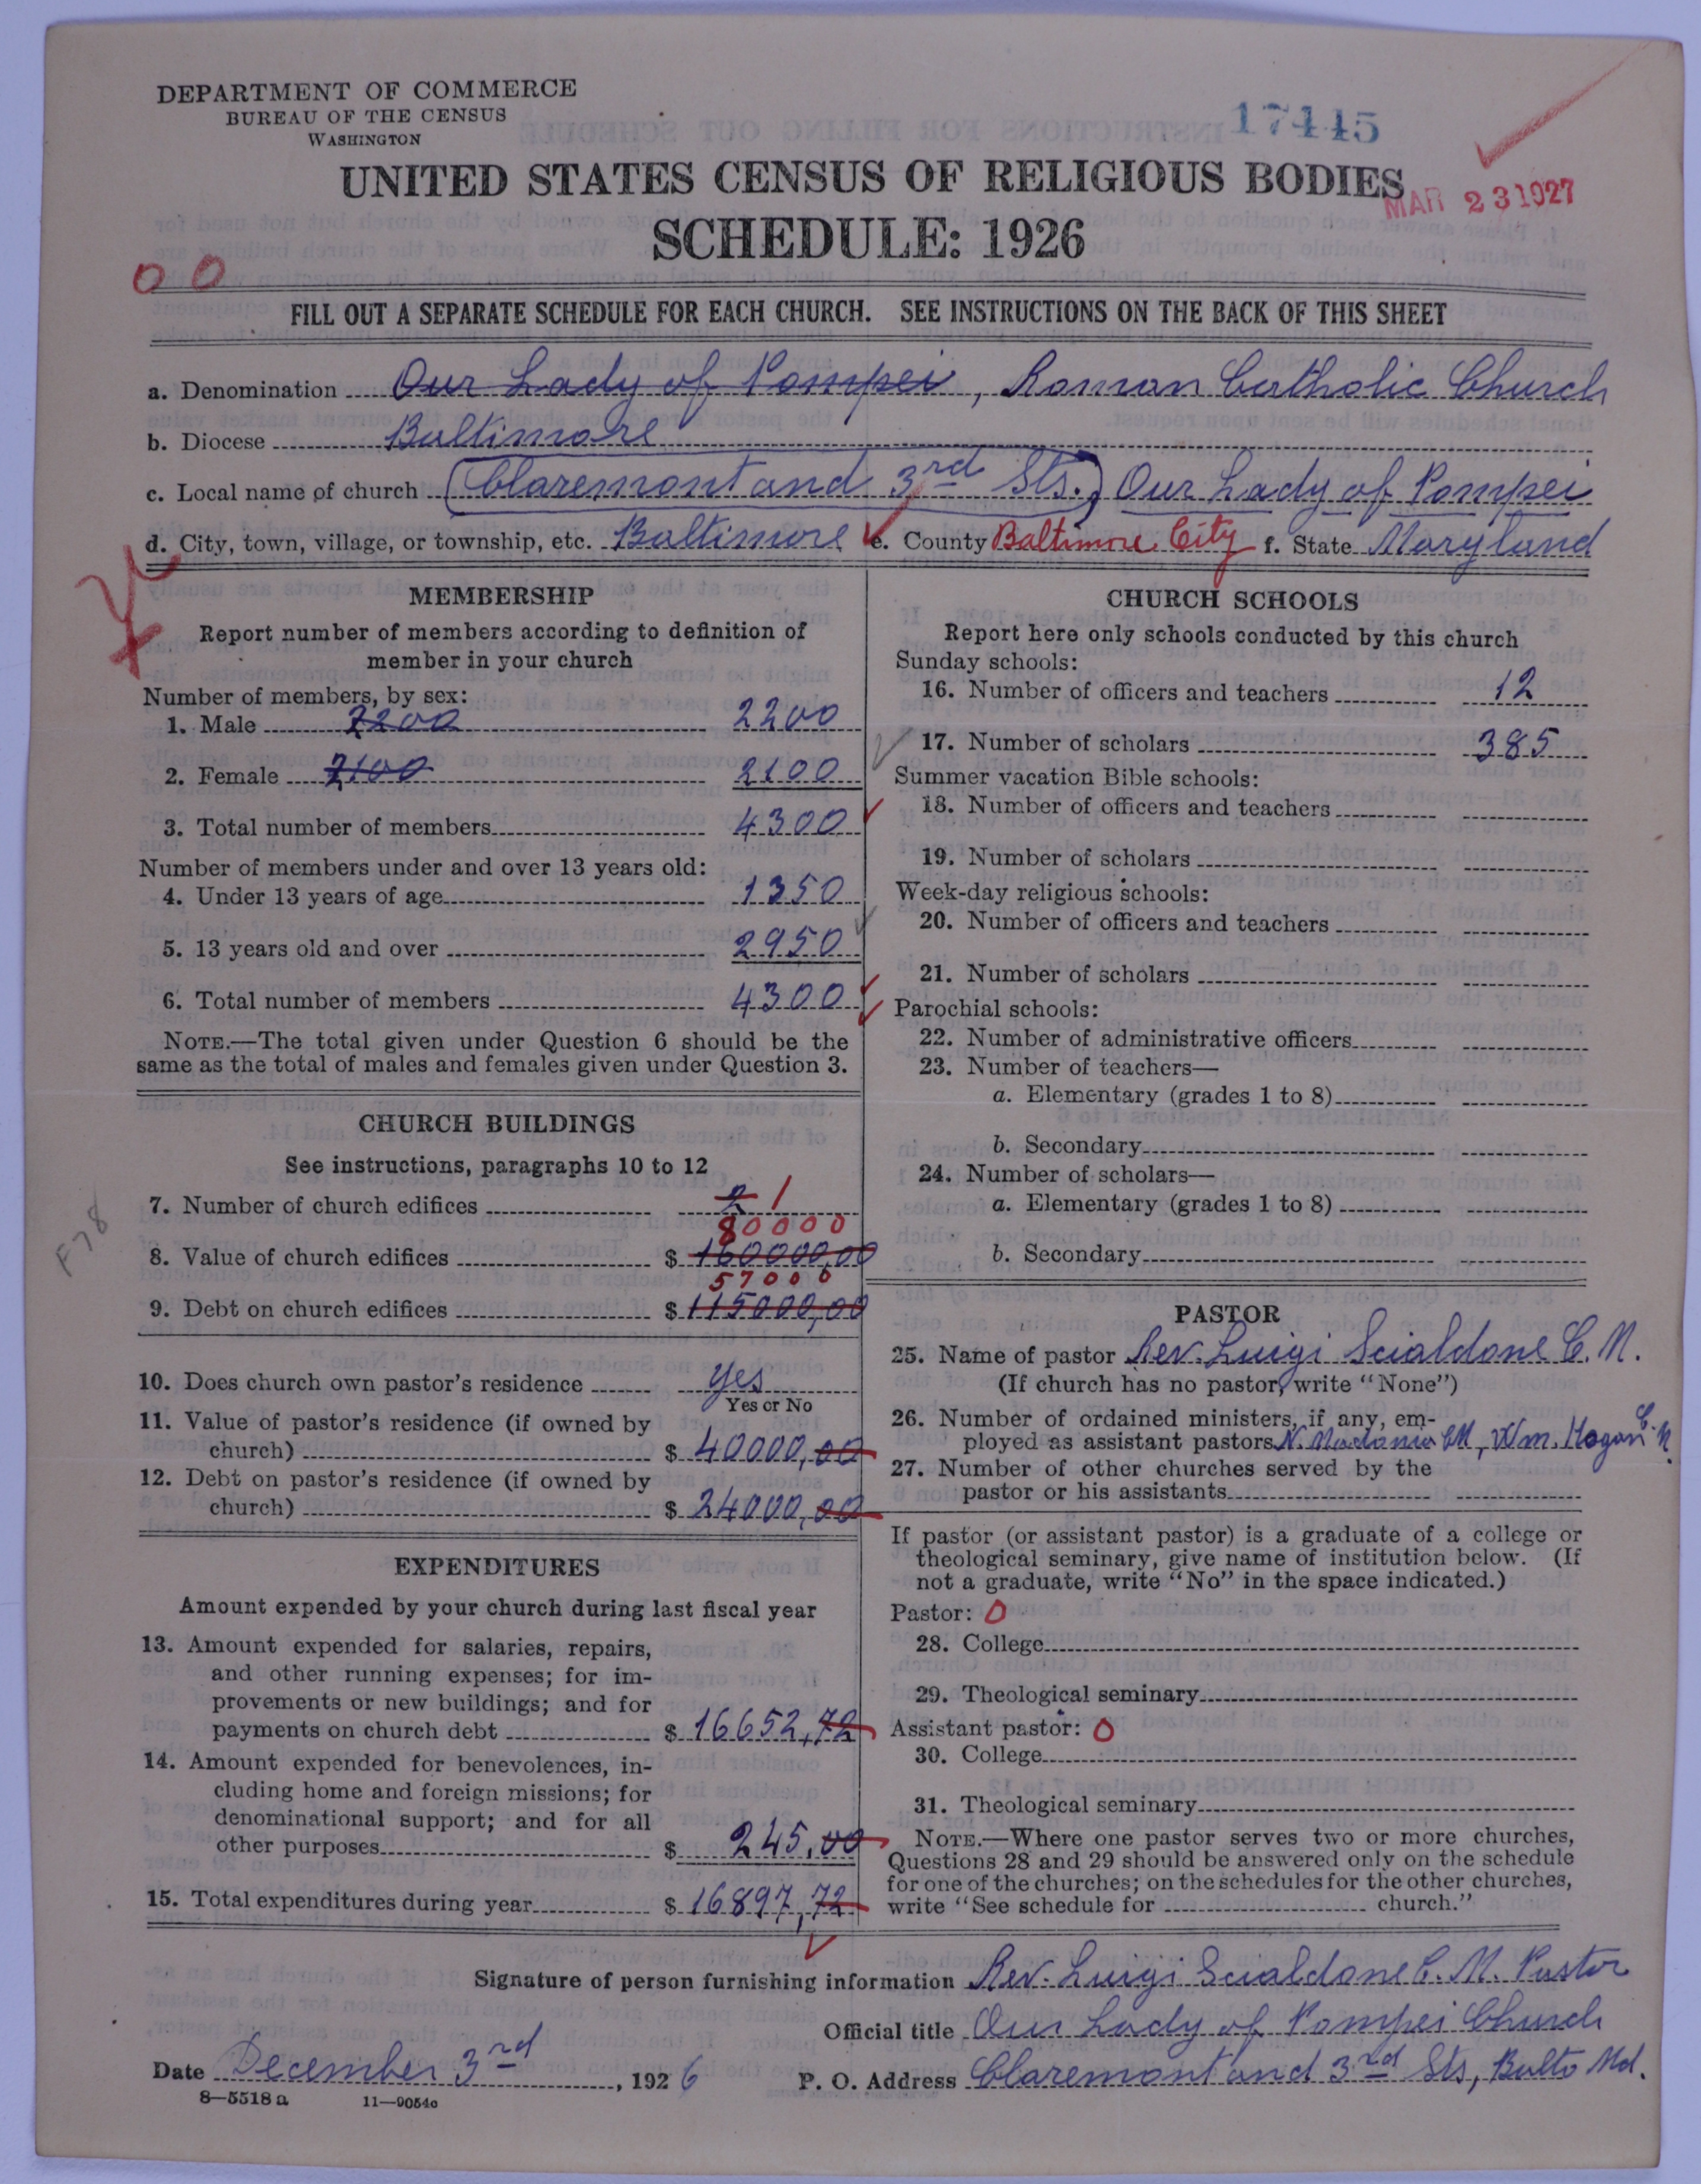 DEPARTMENT OF COMMERCE
BUREAU OF THE CENSUS
WASHINGTON
17445
UNITED STATES CENSUS OF RELIGIOUS BODIES
MAR 23 1927
SCHEDULE: 1926
00
FILL OUT A SEPARATE SCHEDULE FOR EACH CHURCH. SEE INSTRUCTIONS ON THE BACK OF THIS SHEET
a. Denomination Our Lady of Pompei, Roman Catholic Church
b. Diocese Baltimore
c. Local name of church (Claremont and 3rd Sts.) Our Lady of Pompei
d. City, town, village, or township, etc. Baltimore e. County Baltimore City f. State Maryland
MEMBERSHIP
Report number of members according to definition of
member in your church
Number of members, by sex:
1. Male 2200 2200
2. Female 2100 2100
3. Total number of members 4300
Number of members under and over 13 years old:
4. Under 13 years of age 1350
5. 13 years old and over 2950
6. Total number of members 4300
NOTE.—The total given under Question 6 should be the
same as the total of males and females given under Question 3.
CHURCH BUILDINGS
See instructions, paragraphs 10 to 12
7. Number of church edifices 2 1
80000
8. Value of church edifices $ 160000,00
57000
9. Debt on church edifices $ 115000,00
F78
10. Does church own pastor's residence yes
Yes or No
11. Value of pastor's residence (if owned by
church) $ 40000,00
12. Debt on pastor's residence (if owned by
church) $ 24000,00
EXPENDITURES
Amount expended by your church during last fiscal year
13. Amount expended for salaries, repairs,
and other running expenses; for im-
provements or new buildings; and for
payments on church debt $ 16652,72
14. Amount expended for benevolences, in-
cluding home and foreign missions; for
denominational support; and for all
other purposes $ 245,00
15. Total expenditures during year $ 16897,72
CHURCH SCHOOLS
Report here only schools conducted by this church
Sunday schools:
16. Number of officers and teachers 12
17. Number of scholars 385
Summer vacation Bible schools:
18. Number of officers and teachers
19. Number of scholars
Week-day religious schools:
20. Number of officers and teachers
21. Number of scholars
Parochial schools:
22. Number of administrative officers
23. Number of teachers—
a. Elementary (grades 1 to 8)
b. Secondary
24. Number of scholars—
a. Elementary (grades 1 to 8)
b. Secondary
PASTOR
25. Name of pastor Rev. Luigi Scialdone C. M.
(If church has no pastor, write "None")
26. Number of ordained ministers, if any, em-
ployed as assistant pastors N. Madonia CM, Wm. Hogan C. M.
27. Number of other churches served by the
pastor or his assistants
If pastor (or assistant pastor) is a graduate of a college or
theological seminary, give name of institution below. (If
not a graduate, write "No" in the space indicated.)
Pastor: 0
28. College
29. Theological seminary
Assistant pastor: 0
30. College
31. Theological seminary
NOTE.—Where one pastor serves two or more churches,
Questions 28 and 29 should be answered only on the schedule
for one of the churches; on the schedules for the other churches,
write "See schedule for church."
Signature of person furnishing information Rev. Luigi Scialdone C. M. Pastor
Official title Our Lady of Pompei Church
Date December 3rd, 1926 P. O. Address Claremont and 3rd Sts, Balto Md.
8—5518a 11—9054c